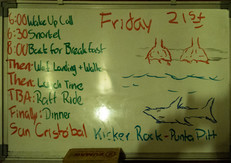 Friday 21st
6:00 Wake Up Call
6:30 Snorkel
8:00 Boat for Breakfast
Then: Wet Landing + Walk
Then: Lunch Time
TBA: Raft Ride
Finally: Dinner
San Cristobal Kicker Rock - Punta Pitt